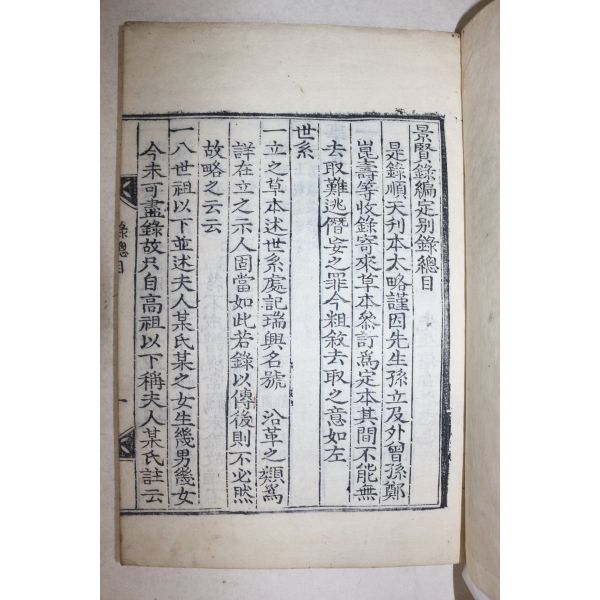 景賢錄編定別錄總目
是錄順天利本太略謹因先生孫立及外曾孫鄭
崑壽等收錄寄來草本參訂爲定本其間不能無
去取難逃僭妄之罪今粗敘去取之意如左
世系
一立之草本述世系處記瑞興名號 沿革之類爲
詳在立之示人固當如此若錄以傳後則不必然
故略之云云
一八世祖以下並述夫人某氏某之女生幾男幾女
今未可盡錄故只自高祖以下稱夫人某氏註云
錄總目
一